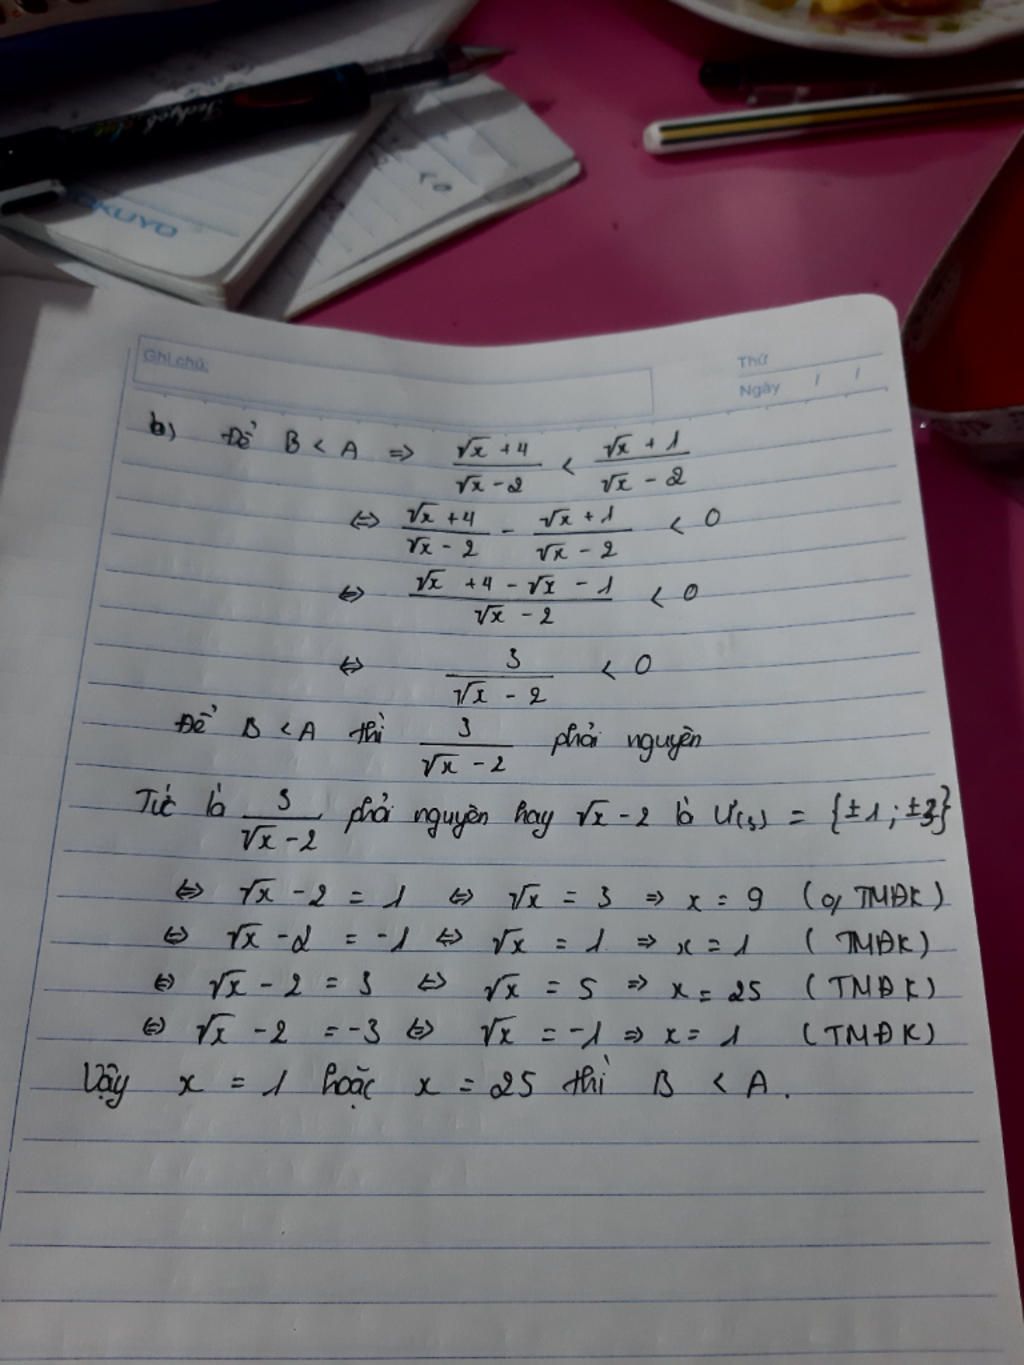 KOKUYO
Ghi chú:
Thứ
Ngày / /
b) Để B < A => (√x + 4)/(√x - 2) < (√x + 1)/(√x - 2)
<=> (√x + 4)/(√x - 2) - (√x + 1)/(√x - 2) < 0
<=> (√x + 4 - √x - 1)/(√x - 2) < 0
<=> 3/(√x - 2) < 0
Để B < A thì 3/(√x - 2) phải nguyên
Tức là 3/(√x - 2) phải nguyên hay √x - 2 là Ư(3) = {±1; ±3}
<=> √x - 2 = 1 <=> √x = 3 => x = 9 (0/ TMĐK)
<=> √x - 2 = -1 <=> √x = 1 => x = 1 (TMĐK)
<=> √x - 2 = 3 <=> √x = 5 => x = 25 (TMĐK)
<=> √x - 2 = -3 <=> √x = -1 => x = 1 (TMĐK)
Vậy x = 1 hoặc x = 25 thì B < A.